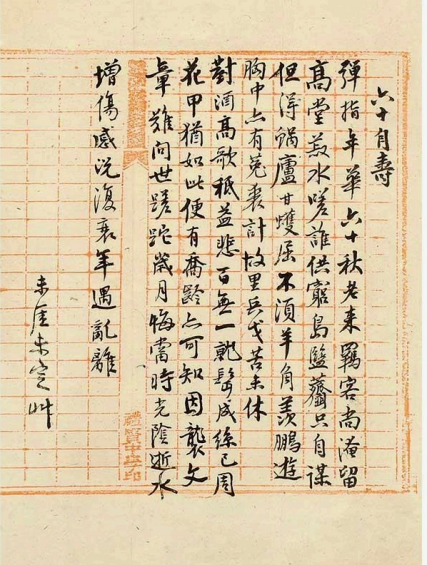 六十自壽
彈指年華六十秋老来羈客尚淹留
高堂菽水嗟誰供窮島鹽虀只自謀
但得蝸廬甘蠖屈不須羊角羡鵬遊
胸中亦有菟裘計故里兵戈苦未休
對酒高歌祇益悲百無一就鬢成絲已周
花甲猶如此便有喬齡亦可知因襲文
章難問世蹉跎歲月悔當時光陰逝水
增傷感況復衰年遇亂離
未厓未定艸